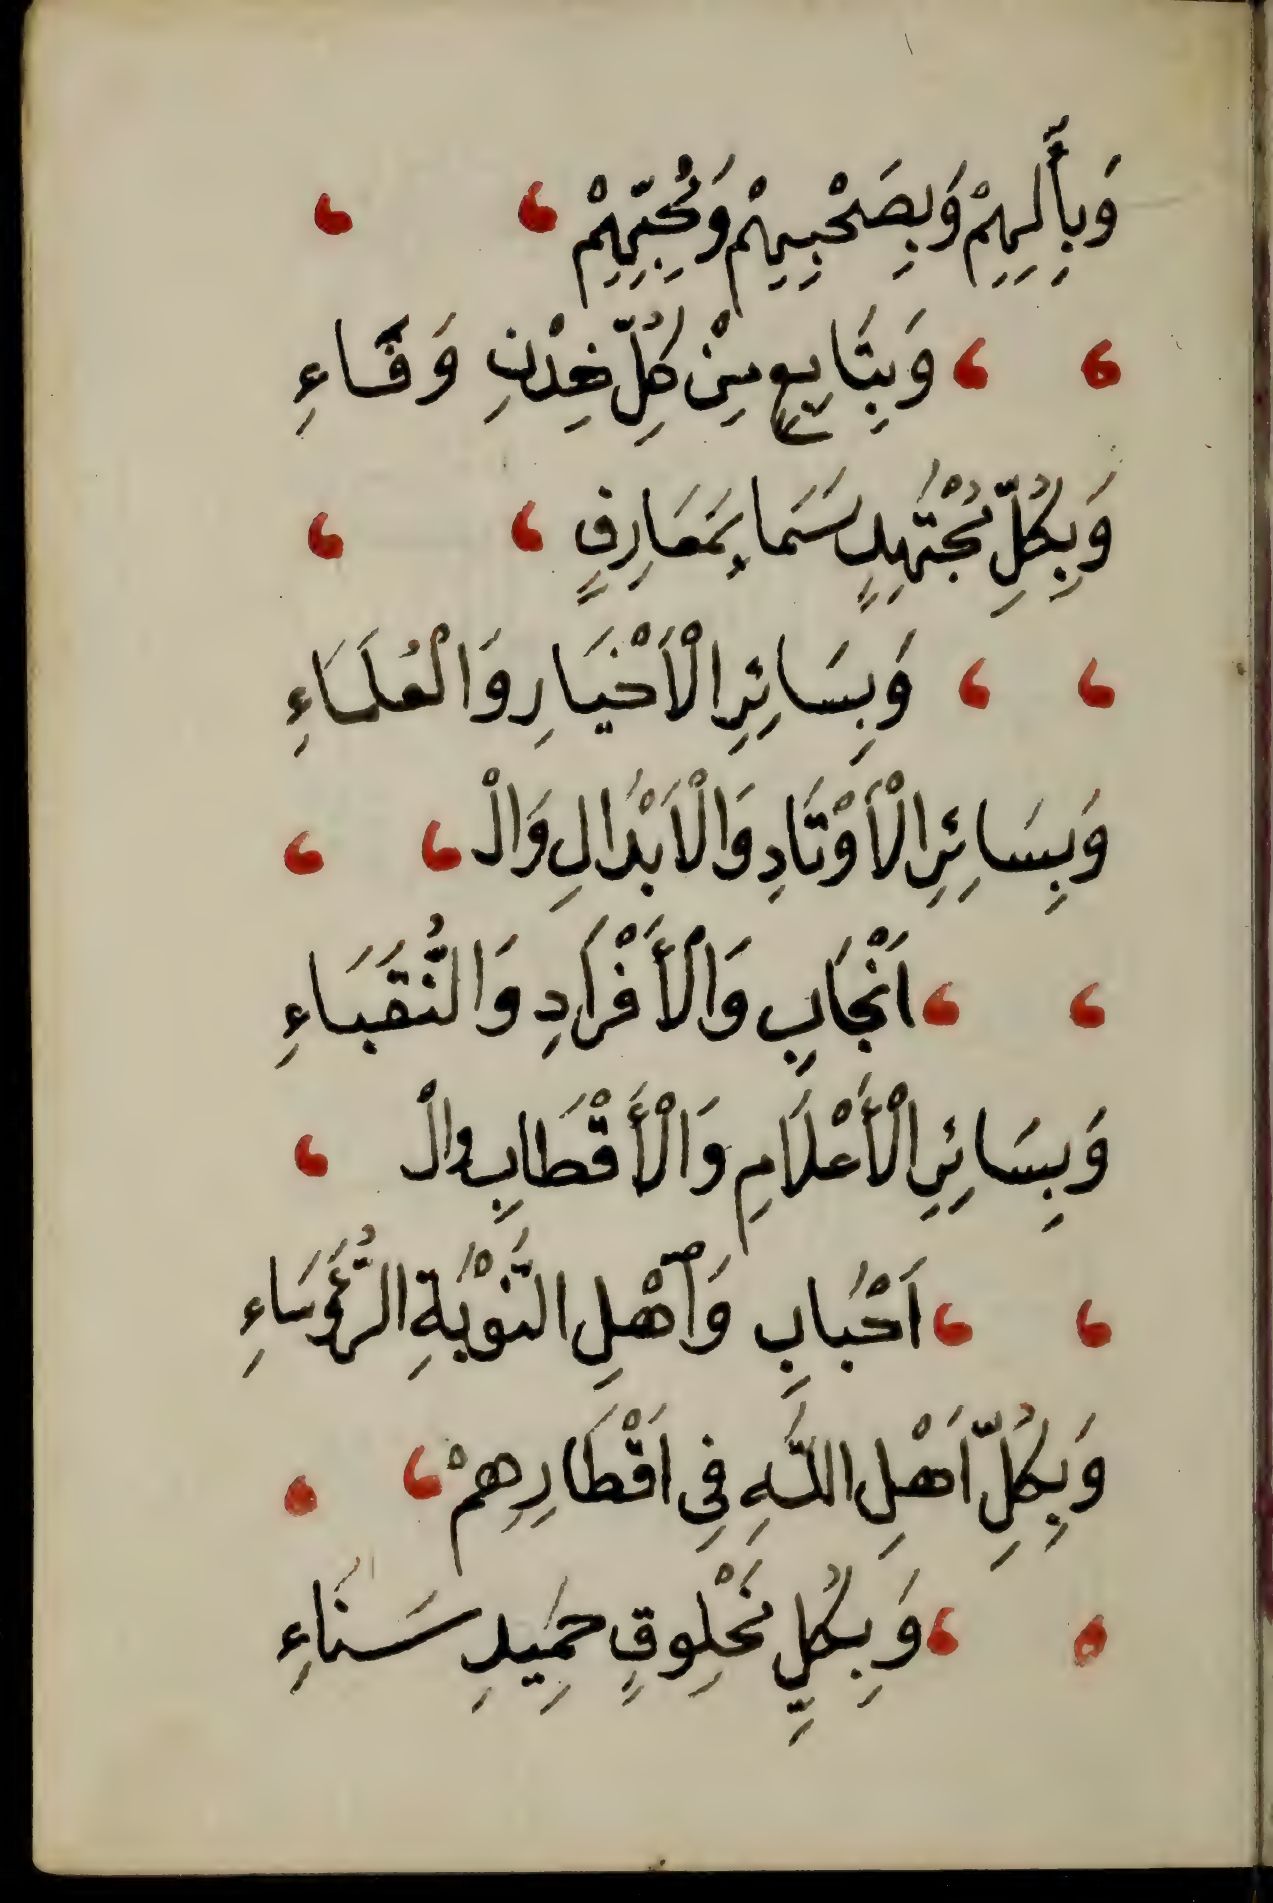 وَبِأَلِهِمْ وَبِصَحْبِهِمْ وَمُحِبِّهِمْ
وَبِتَابِعٍ مِنْ كُلِّ خِدْنِ وَفَاءِ
وَبِكُلِّ مُجْتَهِدٍ سَمَا بِمَعَارِفٍ
وَبِسَائِرِ الْأَخْيَارِ وَالْعُلَمَاءِ
وَبِسَائِرِ الْأَوْتَادِ وَالْأَبْدَالِ وَالْ
اَنْجَابِ وَالْأَفْرَادِ وَالنُّقَبَاءِ
وَبِسَائِرِ الْأَعْلَامِ وَالْأَقْطَابِ والْ
اَحْبَابِ وَأَهْلِ النَّوْبَةِ الرُّؤَسَاءِ
وَبِكُلِّ اَهْلِ اللَّهِ فِى اَقْطَارِهِمْ
وَبِكُلِّ مَخْلُوقٍ حَمِيدِ سَنَاءِ